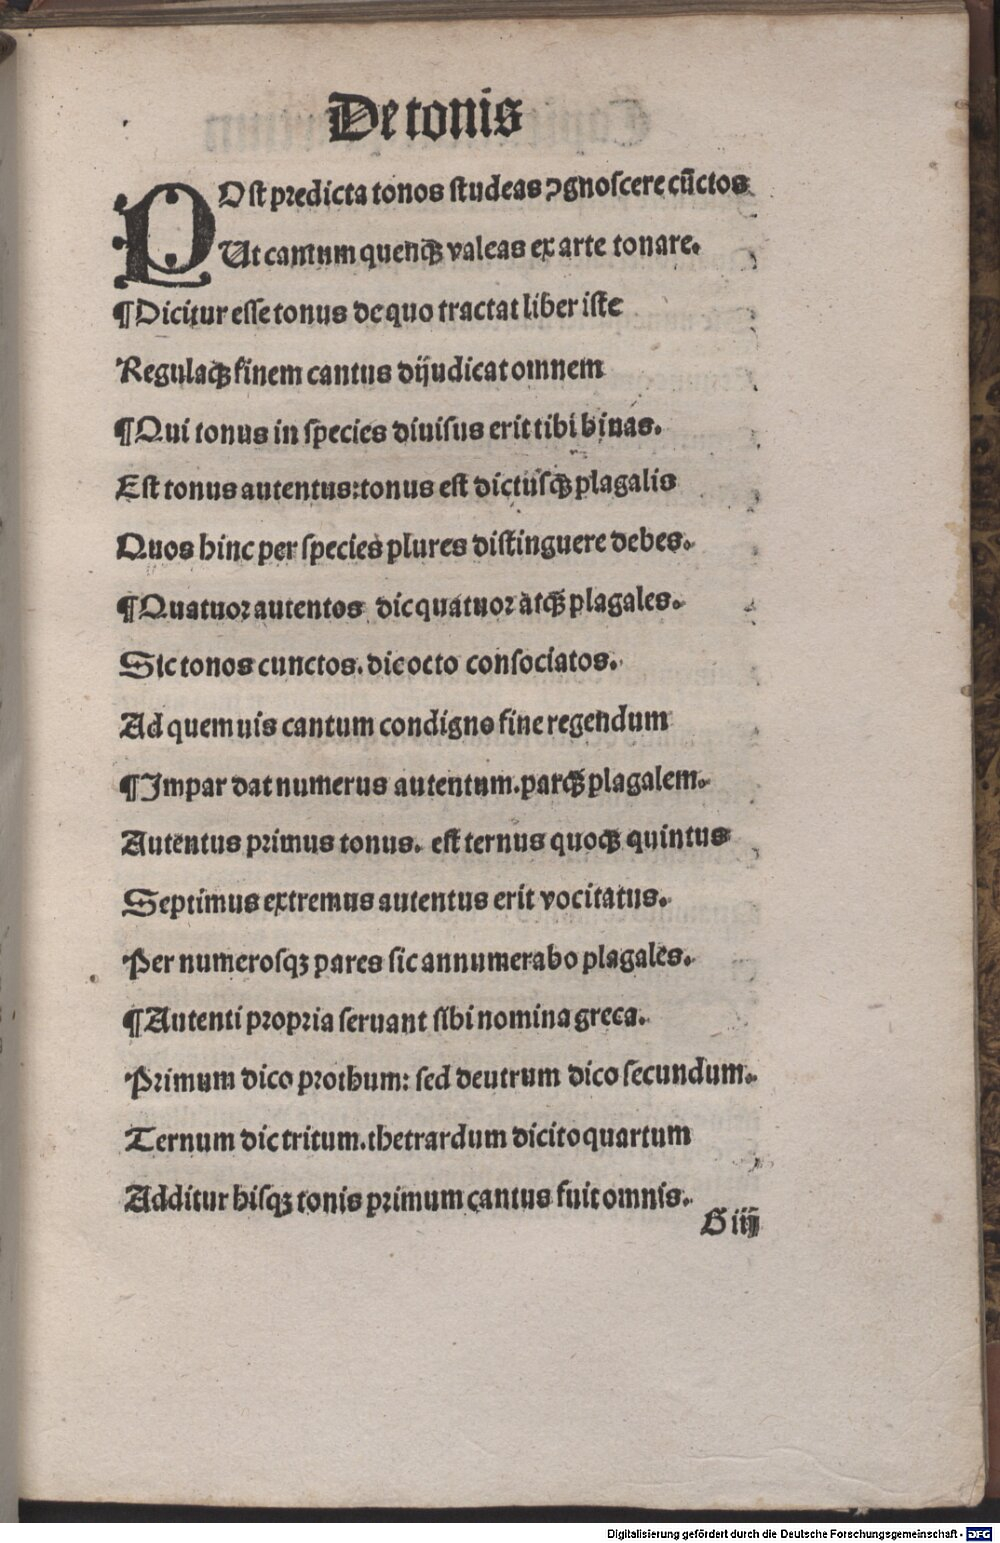 De tonis
POst predicta tonos studeas ꝯgnoscere cūctos
Ut cantum quenqꝫ valeas ex arte tonare.
¶Dicitur esse tonus de quo tractat liber iste
Regulaqꝫ finem cantus dijudicat omnem
¶Qui tonus in species diuisus erit tibi binas.
Est tonus autentus: tonus est dictusqꝫ plagalis
Quos hinc per species plures distinguere debes.
¶Quatuor autentos dic quatuor atqꝫ plagales.
Sic tonos cunctos. dic octo consociatos.
Ad quem uis cantum condigno fine regendum
¶Impar dat numerus autentum. parqꝫ plagalem.
Autentus primus tonus. est ternus quoqꝫ quintus
Septimus extremus autentus erit vocitatus.
Per numerosqꝫ pares sic annumerabo plagales.
¶Autenti propria seruant sibi nomina greca.
Primum dico prothum: sed deutrum dico secundum.
Ternum dic tritum. thetrardum dicito quartum
Additur hisqꝫ tonis primum cantus fuit omnis.
G iij
Digitalisierung gefördert durch die Deutsche Forschungsgemeinschaft - DFG